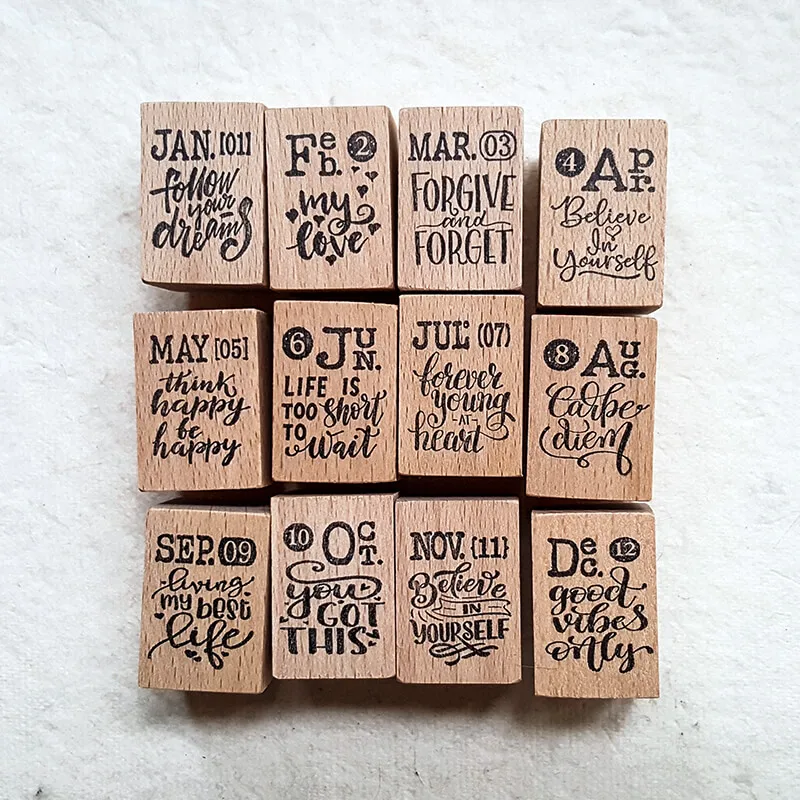 JAN. [01]
follow
your
dreams
Feb. 2
my
love
MAR. (03)
FORGIVE
and
FORGET
4 Apr.
Believe
In
Yourself
MAY [05]
think
happy
be
happy
6 JUN.
LIFE IS
TOO short
TO wait
JUL. (07)
forever
young
-AT-
heart
8 AUG.
Carpe
diem
SEP. 09
living
my best
life
10 OCT.
you
GOT
THIS
NOV. {11}
Believe
IN
YOURSELF
Dec. 12
good
vibes
only